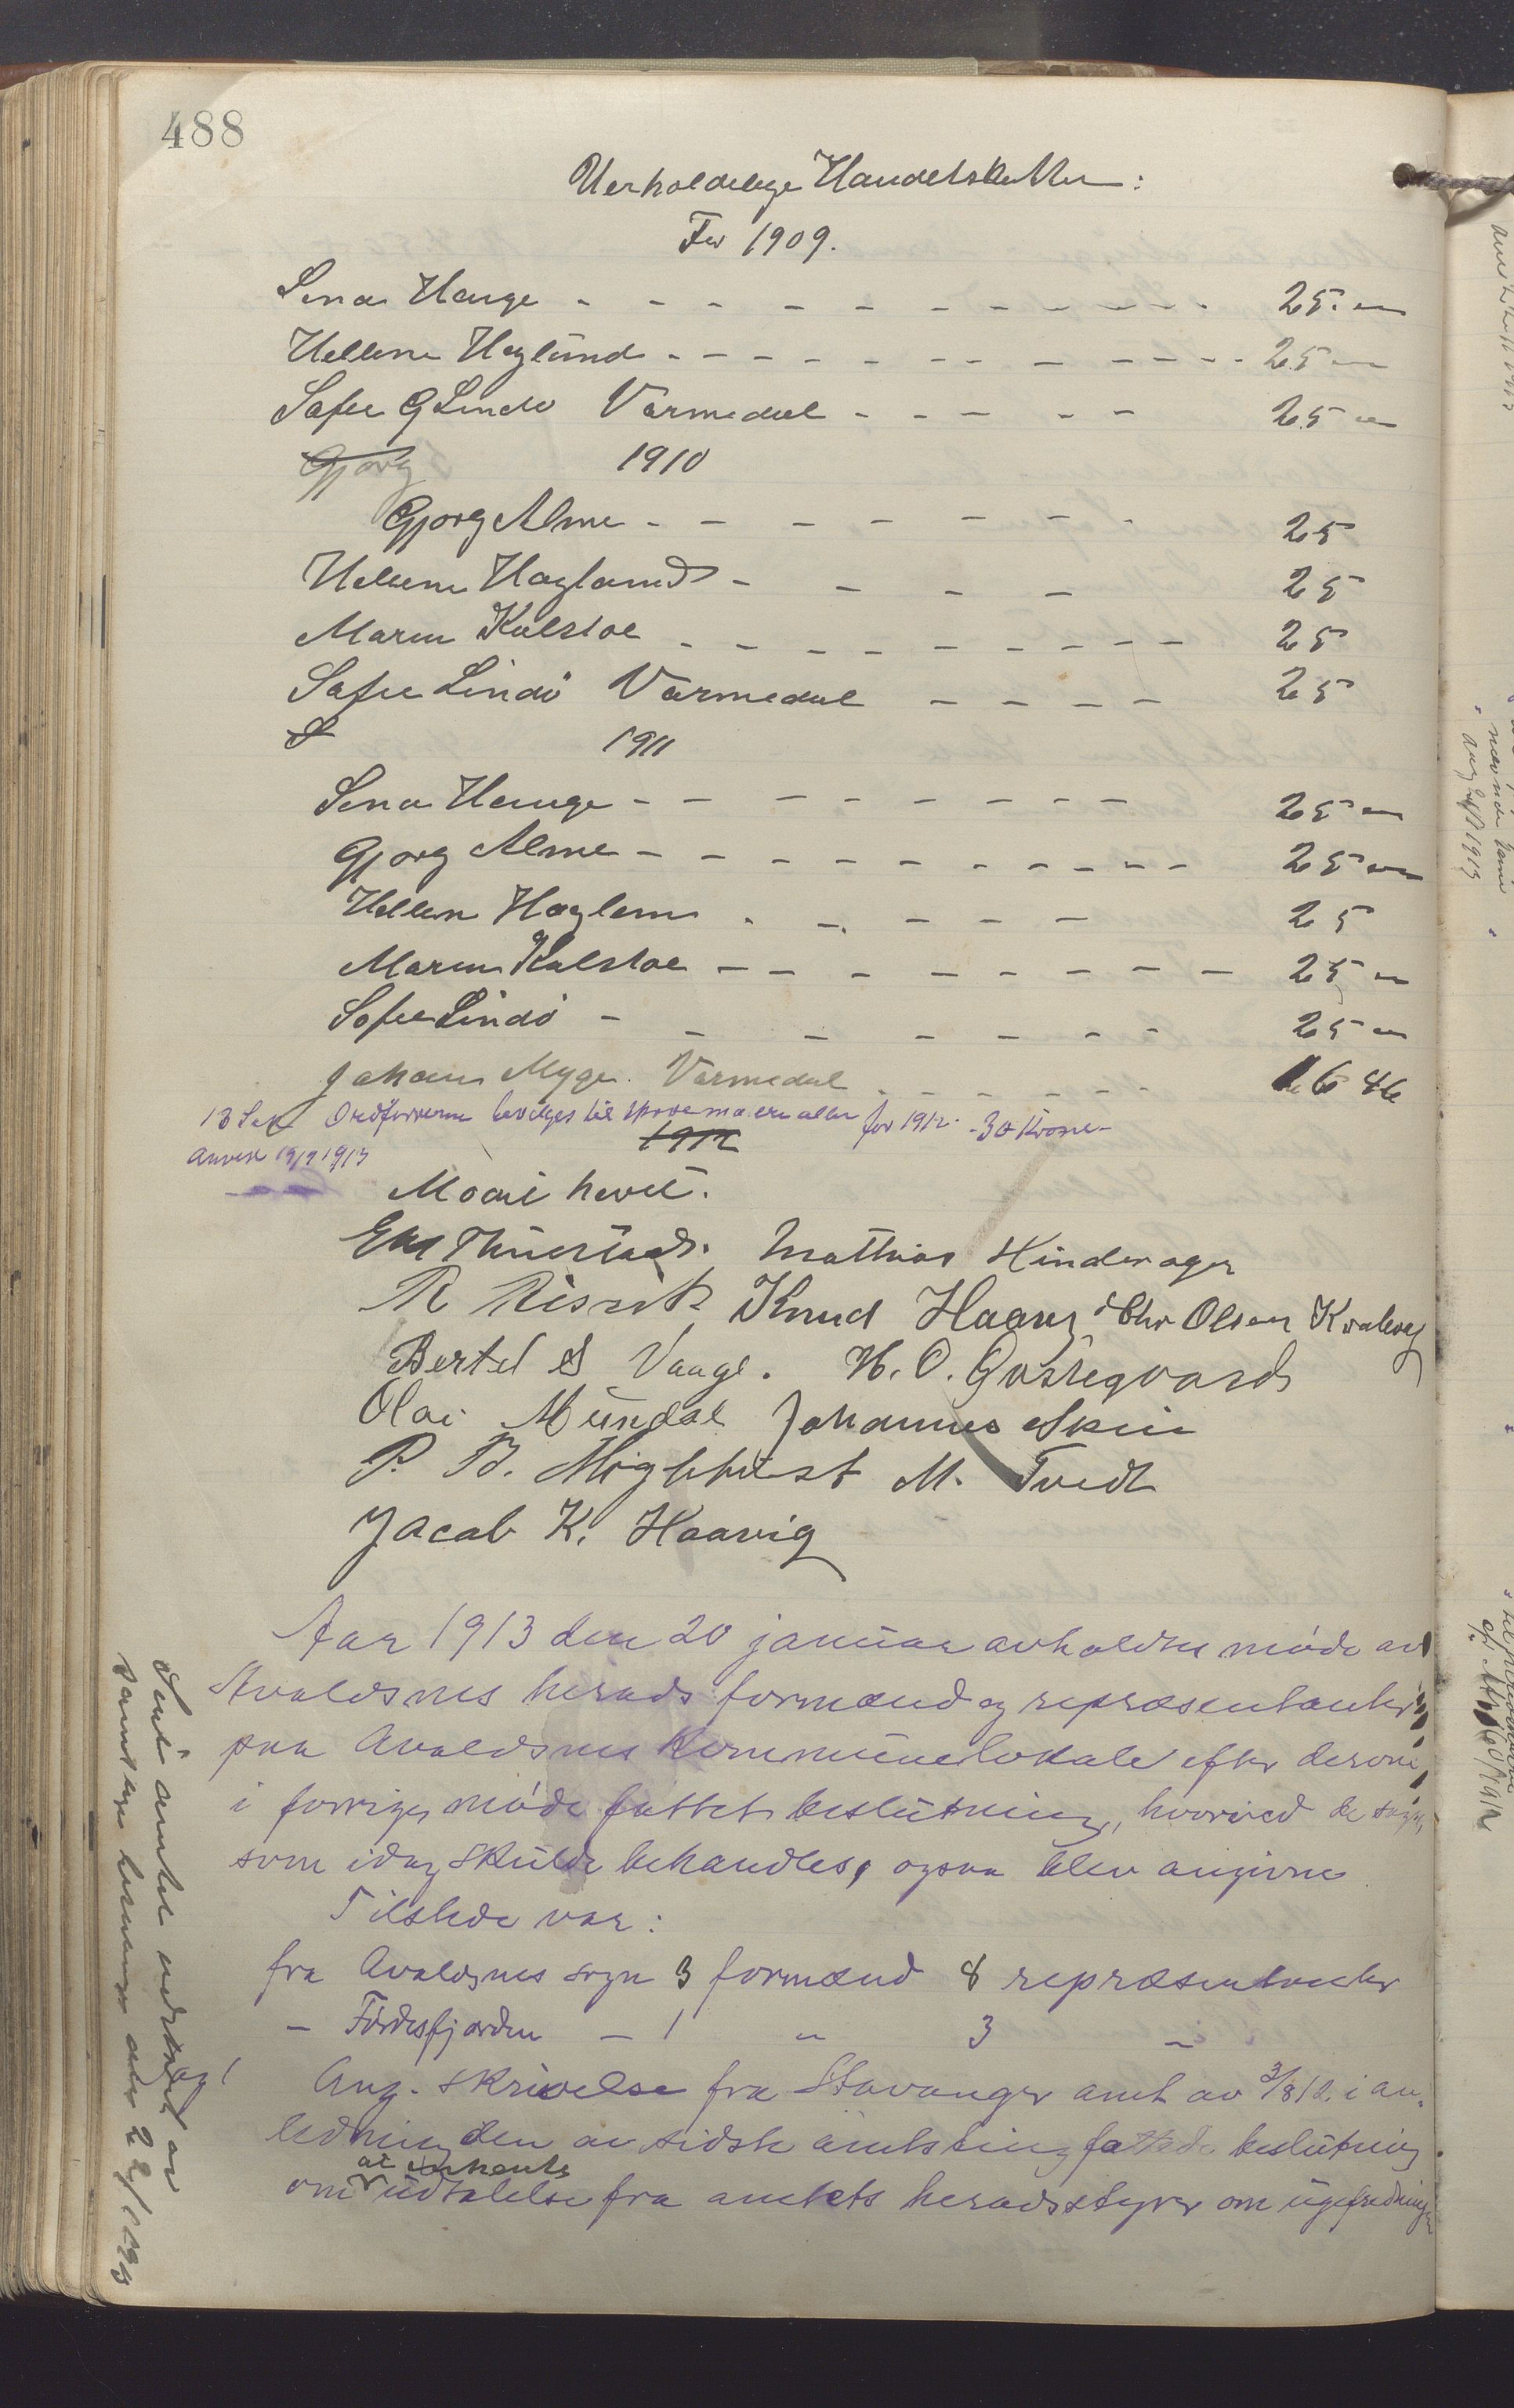 488
Uerholdelige Handelskatter:
For 1909.
Lena Hauge - - - - - - - - - - - - 25.
Hellene Høglund - - - - - - - - - - - - 25
Sofie G Lindø Varmedal - - - - - 25
Gjørg 1910
Gjørg Alme - - - - - - - 25
Helene Hogland - - - - 25
Maren Kalstoe - - - - - - - - - 25
Sofie Lindö Varmedal - - - - 25
S 1911
Lena Hauge - - - - - - - - 25
Gjørg Alme - - - - - - - - - - 25
Hellen Høglan - - - - - 25
Maren Kalstoe - - - - - - - - 25
Sofie Lindö - - - - - - - 25
Johan Myge. Varmedal - - - - - 16 86
13 Sak Ordføreren bevilges til skrivematerialer for 1912. - 30 Kroner -
Anvist 19/9 1913 1912
Møtet hevet.
Mathias Hinderager
R Risvik Knud Haavig Chr Olsen Kvalevaag
Bertel S Vaage. H. O. Østregaard
Olai Mundal Johannes Skeie
P. B. M. Tvedt
Jacob K. Haavig
Aar 1913 den 20 januar avholdtes møde av
Avaldsnes herads formænd og repræsentanter
paa Avaldsnes Kommunelokale efter derom
i forrige møde fattet beslutning, hvorved de sager,
som idag skulde behandles, ogsaa blev angivne
Tilstede var:
fra Avaldsnes sogn 3 formænd 8 repræsentanter
- Førdesfjorden - 1 " 3 "
sag 1 Ang. skrivelse fra Stavanger amt av 3/8 12. i an-
ledning den av sidste amtsting fattede beslutning
om at innhente udtalelse fra amtets heradsstyrer om ugefredningen
Sendt amtet utskrift av
samtlige